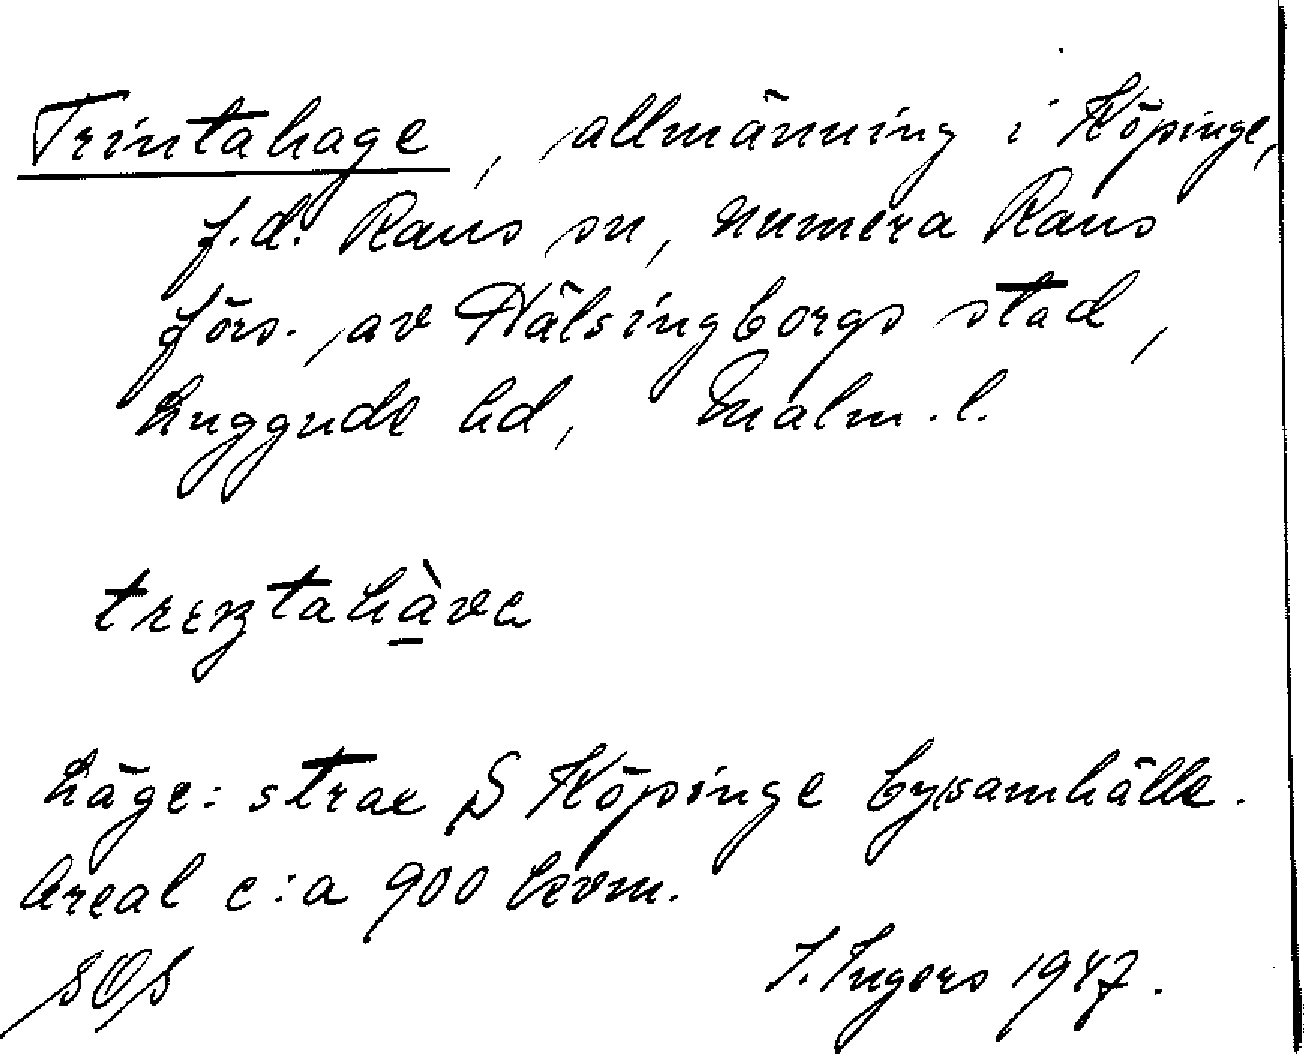 Trintahage, allmänning i Köpinge,
f.d. Raus sn, numera Raus
förs. av Hälsingborgs stad,
Luggude hd, Malm. l.
Läge: strax S Köpinge bysamhälle.
Areal c:a 900 kvm.
I. Ingers 1947.